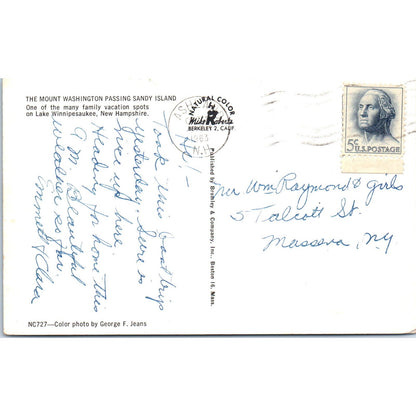 THE MOUNT WASHINGTON PASSING SANDY ISLAND
One of the many family vacation spots
on Lake Winnipesaukee, New Hampshire.
NATURAL COLOR
Mike Roberts
BERKELEY 2, CALIF
1963
N.H.
5¢ U.S. POSTAGE
Hi! -
Took this boat trip
yesterday. Sure is
nice up here.
Heading for home this
A.M. Beautiful
weather so far.
Emmett & Clara
Published by Bromley & Company, Inc., Boston 16, Mass.
Mr Wm Raymond & girls
5 Talcott St.
Massena, NY
NC727—Color photo by George F. Jeans